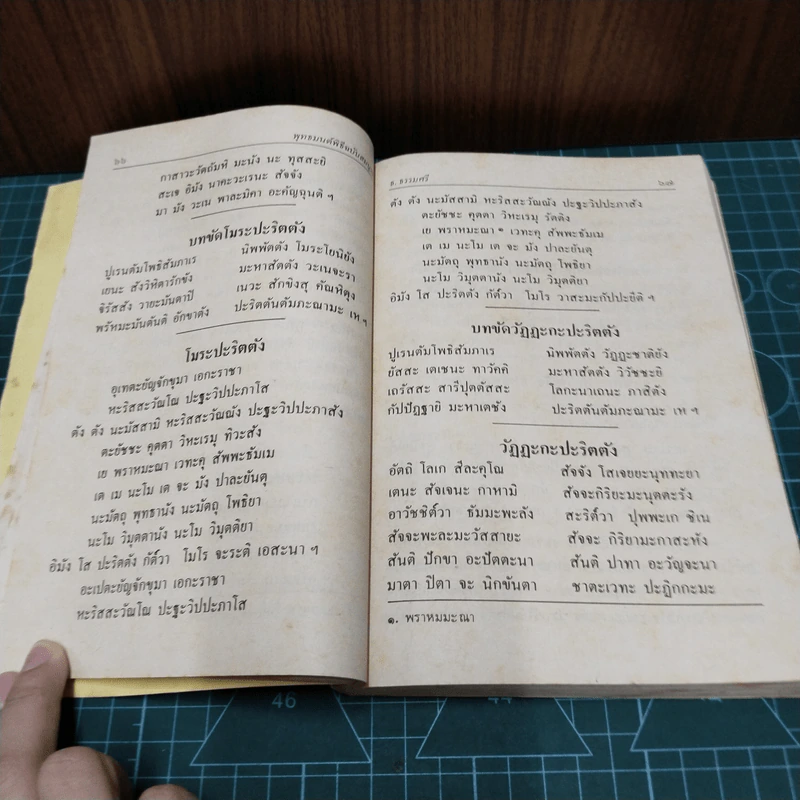 ๖๖
พุทธมนต์พิธีฉบับ
กาสาวะวัตถัมหิ มะนัง นะ ทุสสะยิ
สะเจ อิมัง นาคะวะเรนะ สัจจัง
มา มัง วะเน พาละมิคา อะคัญฉุนติ ฯ
บทขัดโมระปะริตตัง
ปูเรนตัมโพธิสัมภาเร นิพพัตตัง โมระโยนิยัง
เยนะ สังวิหิตารักขัง มะหาสัตตัง วะเนจะรา
จิรัสสัง วายะมันตาปิ เนวะ สักขิงสุ คัณหิตุง
พรัหมะมันตันติ อักขาตัง ปะริตตันตัมภะณามะ เห ฯ
โมระปะริตตัง
อุเทตะยัญจักขุมา เอกะราชา
หะริสสะวัณโณ ปะฐะวิปปะภาโส
ตัง ตัง นะมัสสามิ หะริสสะวัณณัง ปะฐะวิปปะภาสัง
ตะยัชชะ คุตตา วิหะเรมุ ทิวะสัง
เย พราหมะณา เวทะคุ สัพพะธัมเม
เต เม นะโม เต จะ มัง ปาละยันตุ
นะมัตถุ พุทธานัง นะมัตถุ โพธิยา
นะโม วิมุตตานัง นะโม วิมุตติยา
อิมัง โส ปะริตตัง กัต๎วา โมโร จะระติ เอสะนา ฯ
อะเปตะยัญจักขุมา เอกะราชา
หะริสสะวัณโณ ปะฐะวิปปะภาโส
ธ. ธรรมศรี
ตัง ตัง นะมัสสามิ หะริสสะวัณณัง ปะฐะวิปปะภาสัง
ตะยัชชะ คุตตา วิหะเรมุ รัตติง
เย พราหมะณา ๑ เวทะคุ สัพพะธัมเม
เต เม นะโม เต จะ มัง ปาละยันตุ
นะมัตถุ พุทธานัง นะมัตถุ โพธิยา
นะโม วิมุตตานัง นะโม วิมุตติยา
อิมัง โส ปะริตตัง กัต๎วา โมโร วาสะมะกัปปะยีติ ฯ
บทขัดวัฏฏะกะปะริตตัง
ปูเรนตัมโพธิสัมภาเร นิพพัตตัง วัฏฏะชาติยัง
ยัสสะ เตเชนะ ทาวัคคิ มะหาสัตตัง วิวัชชะยิ
เถรัสสะ สารีปุตตัสสะ โลกะนาเถนะ ภาสิตัง
กัปปัฏฐายิ มะหาเตชัง ปะริตตันตัมภะณามะ เห ฯ
วัฏฏะกะปะริตตัง
อัตถิ โลเก สีละคุโณ สัจจัง โสเจยยะนุททะยา
เตนะ สัจเจนะ กาหามิ สัจจะกิริยะมะนุตตะรัง
อาวัชชิต๎วา ธัมมะพะลัง สะริต๎วา ปุพพะเก ชิเน
สัจจะพะละมะวัสสายะ สัจจะ กิริยามะกาสะหัง
สันติ ปักขา อะปัตตะนา สันติ ปาทา อะวัญจะนา
มาตา ปิตา จะ นิกขันตา ชาตะเวทะ ปะฏิกกะมะ
๑. พราหมมะณา